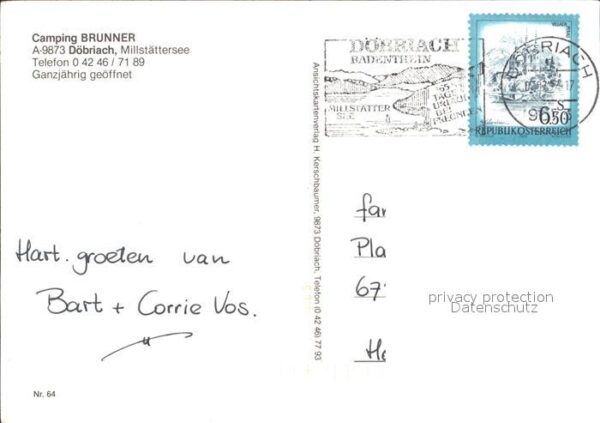 Camping BRUNNER
A-9873 Döbriach, Millstättersee
Telefon 0 42 46 / 71 89
Ganzjährig geöffnet
DÖBRIACH
RADENTHEIN
MILLSTÄTTER
SEE
URLAUB
BEI
FREUNDEN
DÖBRIACH
S
6.50
REPUBLIK ÖSTERREICH
Ansichtskartenverlag H. Kerschbaumer, 9873 Döbriach, Telefon (0 42 46) 77 93
Hart. groeten van
Bart + Corrie Vos.
fam
Pla
67
He
privacy protection
Datenschutz
Nr. 64